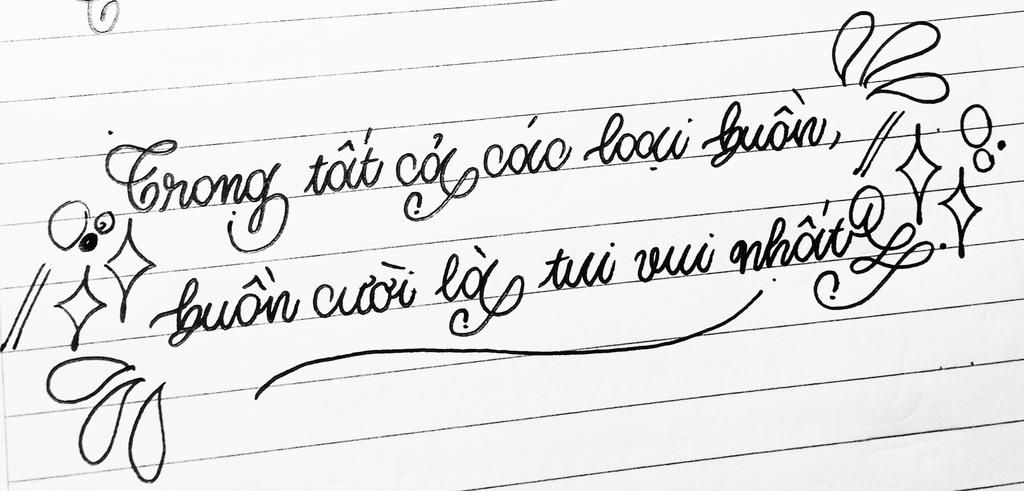 Trong tất cả các loại buồn,
buồn cười là tui vui nhất